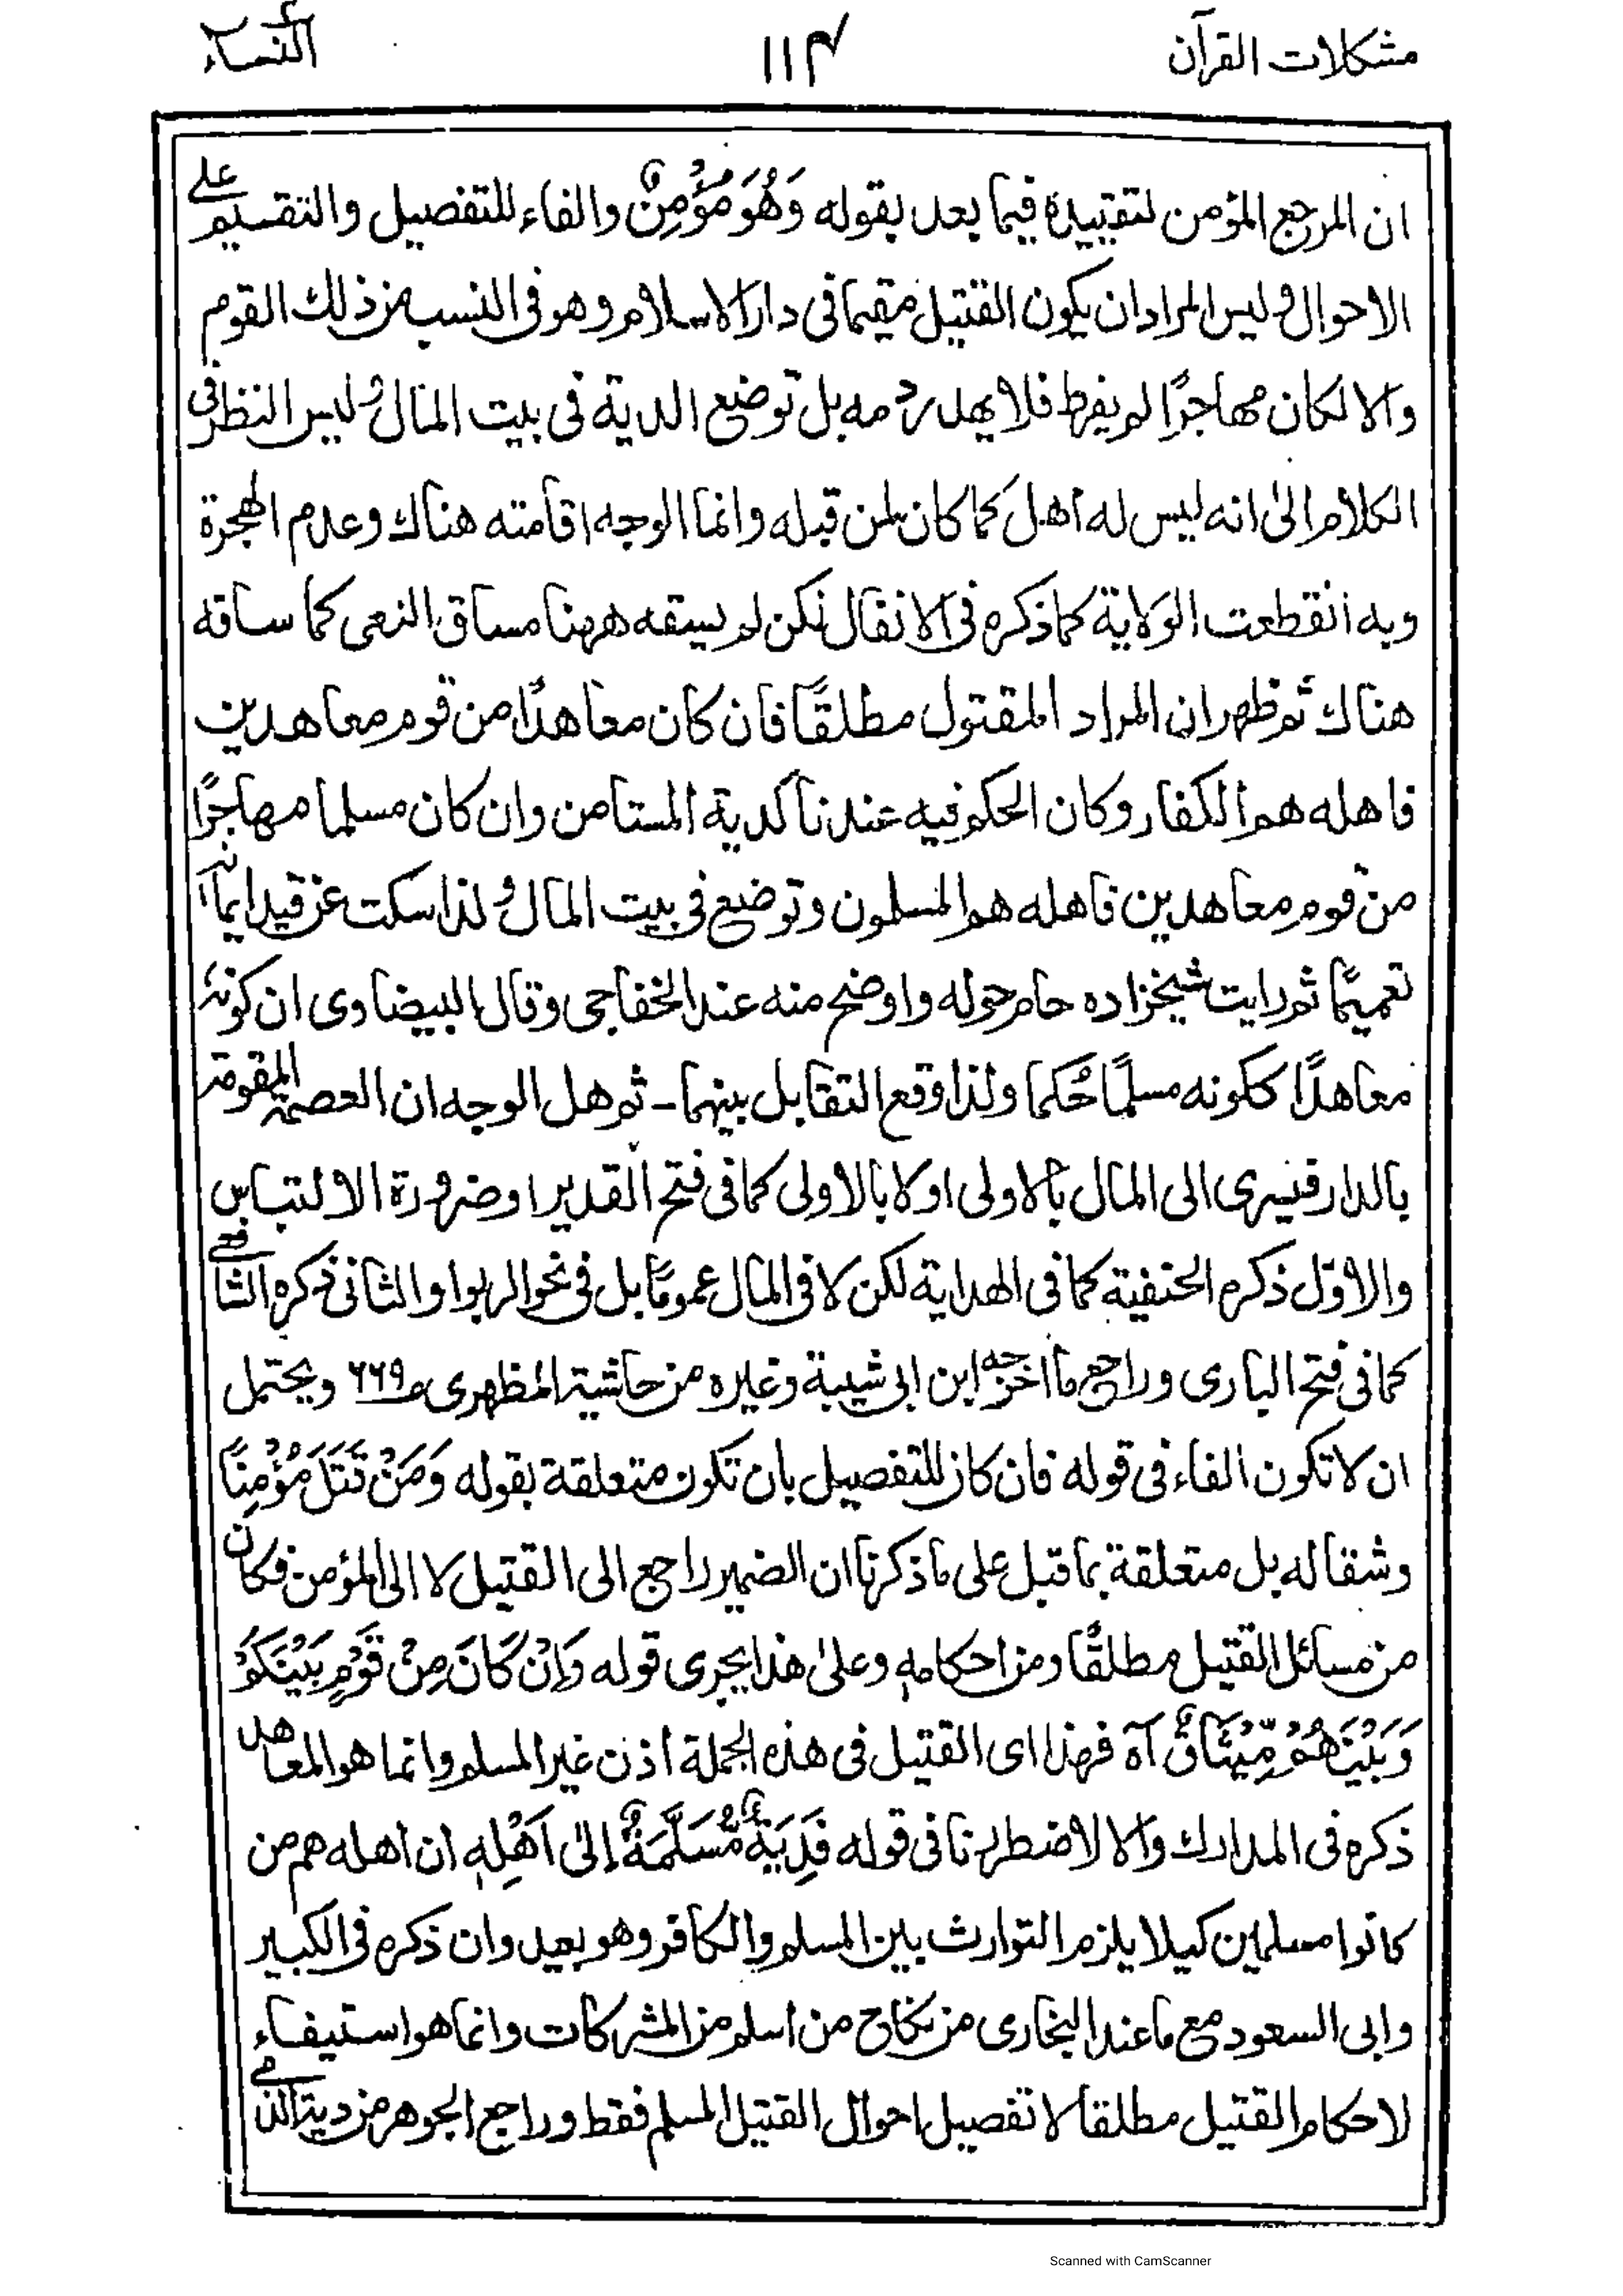 مشكلات القرآن
١١٣
النساء
ان المرجع المؤمن لتقييده فيما بعد بقوله وَهُوَ مُؤْمِنٌ والفاء للتفصيل والتقسيم على
الاحوال وليس المراد ان يكون القتيل مقيما فى دار الاسلام وهو فى النسب من ذلك القوم
والا لكان مهاجرًا لم يفرط فلا يهدر دمه بل توضع الدية فى بيت المال وليس النظر فى
الكلام الىٰ انه ليس له اهل كما كان لمن قبله وانما الوجه اقامته هناك وعدم الهجرة
وبه انقطعت الولاية كما ذكره فى الانفال لكن لم يسقه ههنا مساق النعى كما ساقه
هناك ثم ظهر ان المراد المقتول مطلقًا فان كان معاهدًا من قوم معاهدين
فاهله هم الكفار وكان الحكم فيه عندنا كدية المستامن وان كان مسلما مهاجرًا
من قوم معاهدين فاهله هم المسلمون وتوضع فى بيت المال ولذا سكت عن قيد ايمانه
تعميمًا ثم رايت شيخزاده حام حوله واوضح منه عند الخفاجى وقال البيضاوى ان كونه
معاهدًا ككونه مسلمًا حُكما ولذا وقع التقابل بينهما ـ ثم هل الوجه ان العصمة المقومة
بالدار فيسرى الى المال بالاولى اولا بالاولى كما فى فتح القدير او ضرورة الالتباس
والاوّل ذكره الحنفية كما فى الهداية لكن لا فى المال عمومًا بل فى نحو الربوا والثانى ذكره الشافعى
كما فى فتح البارى وراجع ما اخرجه ابن ابى شيبة وغيره من حاشية المظهرى ص٦٦٩ ويحتمل
ان لا تكون الفاء فى قوله فان كان للتفصيل بان تكون متعلقة بقوله وَمَنْ قَتَلَ مُؤْمِنًا
وشقا له بل متعلقة بما قبل على ما ذكرنا ان الضمير راجع الى القتيل لا الى المؤمن فكان
من مسائل القتيل مطلقًا ومن احكامهٖ وعلىٰ هذا يجرى قوله وَاِنْ كَانَ مِنْ قَوْمٍ بَيْنَكُمْ
وَبَيْنَهُمْ مِّيْثَاقٌ آه فهذا اى القتيل فى هذه الجملة اذن غير المسلم وانما هو المعاهد
ذكره فى المدارك والا لاضطررنا فى قوله فَدِيَةٌ مُّسَلَّمَةٌ اِلىٰٓ اَهْلِهٖ ان اهله هم من
كانوا مسلمين كيلا يلزم التوارث بين المسلم والكافر وهو بعيد وان ذكره فى الكبير
وابى السعود مع ما عند البخارى من نكاح من اسلم من المشركات وانما هو استيفاء
لاحكام القتيل مطلقا لا تفصيل احوال القتيل المسلم فقط وراجع الجوهر من دية الذمى
Scanned with CamScanner